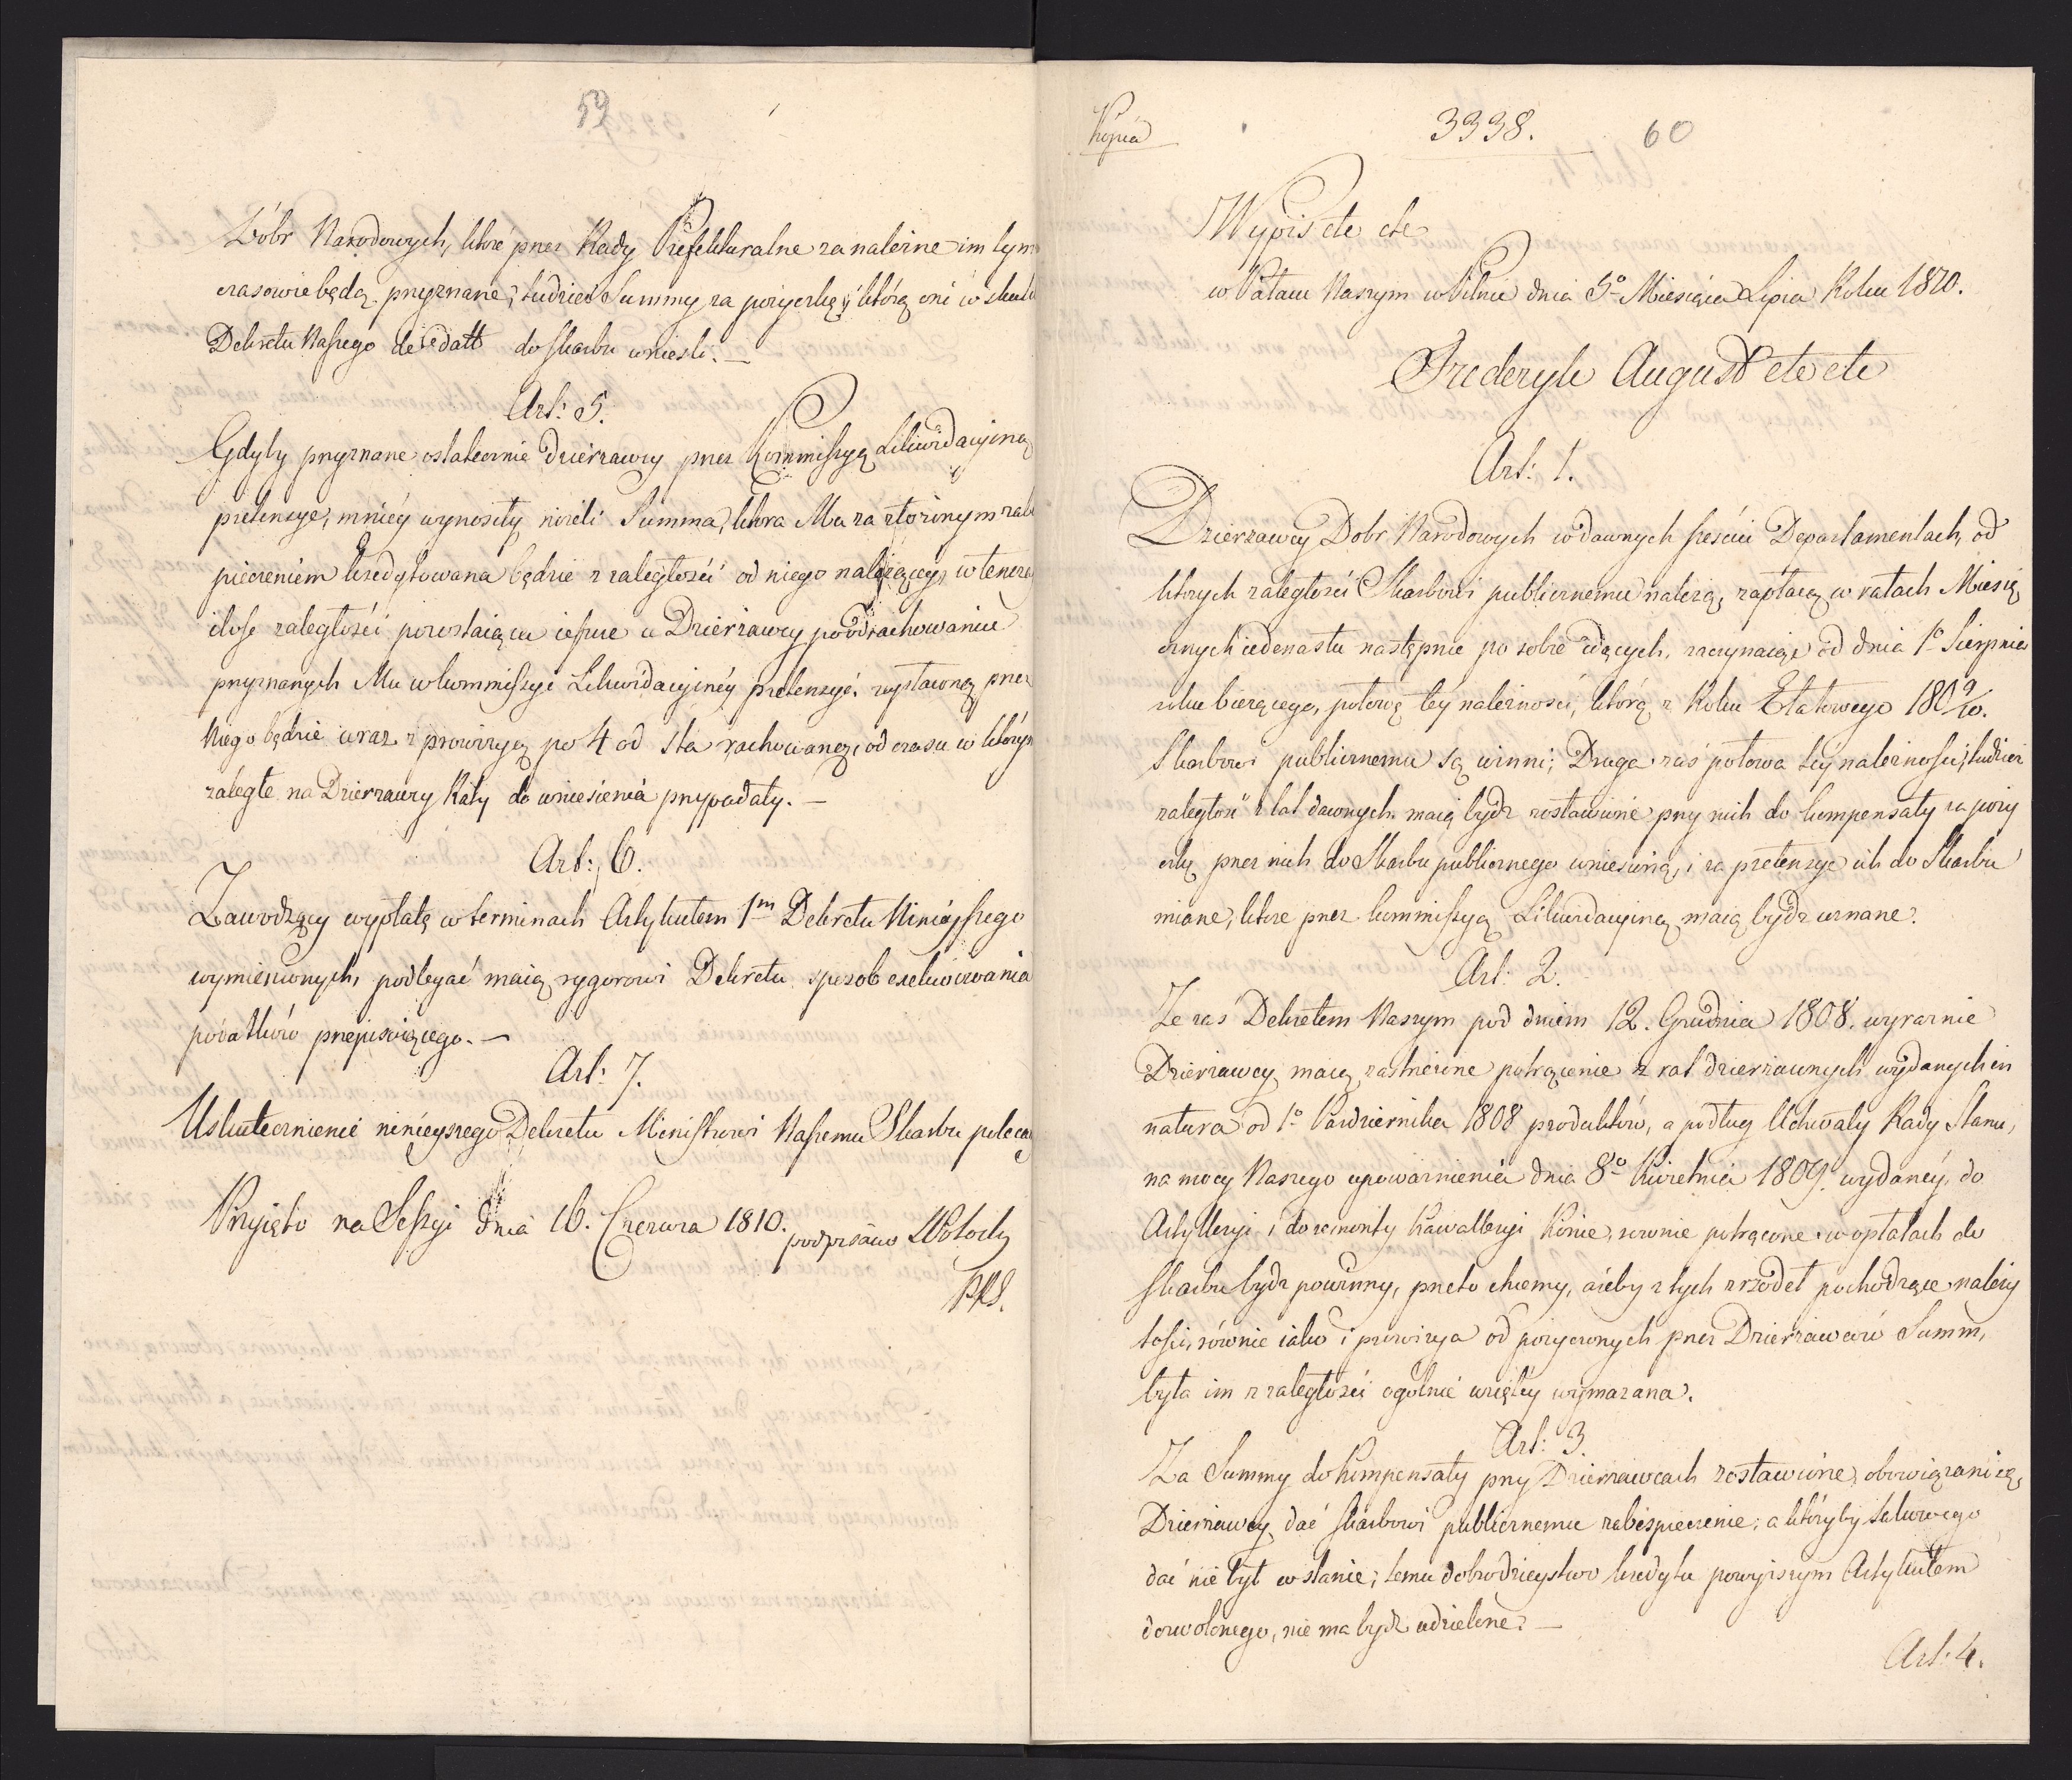 59
Dóbr Narodowych, które przez Rady Prefekturalne za należne im tym
czasowie będą przyznane; tudzież Summy za pożyczkę, którą oni w skut
Dekretu Naszego de dato do skarbu wnieśli. —
Art: 5.
Gdyby przyznane ostatecznie Dzierżawcy przez Kommissyą Likwidacyiną
pretensye, mniéy wynosiły niżeli Summa, która Mu za złożonym zab
pieczeniem kredytowana będzie z zaległości od niego należącey, w tencza
ilość zaległości pozostaiąca ieszcze u Dzierżawcy po odrachowaniu
przyznanych Mu w kommissyi Likwidacyinéy pretensyi zapłaconą przez
Niego będzie wraz z prowizyą po 4 od sta rachowaną, od czasu w którym
zaległe na Dzierżawcy Raty do wniesienia przypadały. —
Art: 6.
Zawodzący wypłatę w terminach Artykułem 1m Dekretu Ninieyszego
wymienionych, podlegać maią rygorowi Dekretu sposob exekwowania
podatków przepisuiącego. —
Art: 7.
Uskutecznienie ninieyszego Dekretu Ministrowi Naszemu Skarbu poleca
Przyięto na Sessyi dnia 16. Czerwca 1810. podpisano
PRS.
Kopia
3338. 60
Wypis etc etc
w Pałacu Naszym w Pilnic dnia 5o Miesiąca Lipca Roku 1810.
Fryderyk August etc etc
Art: 1.
Dzierżawcy Dobr Narodowych w dawnych sześciu Departamentach, od
których zaległości Skarbowi publicznemu należą, zapłacą w ratach Miesię
cznych iedenastu następnie po sobie idących, zaczynaiąc od dnia 1o Sierpnia
roku bieżącego, połowę téy należności, którą z Roku Etatowego 1809/10.
Skarbowi publicznemu są winni; Druga zaś połowa téy należności, tudzież
zaległość z lat dawnych maią bydź zostawione przy nich do kompensaty za poży
czkę przez nich do Skarbu publicznego wniesioną, i za pretensye ich do Skarbu
miane, które przez kommissyą Likwidacyiną maią bydź uznane.
Art: 2.
Że zaś Dekretem Naszym pod dniem 12. Grudnia 1808. wyraznie
Dzierżawcy maią zastrzeżone potrącenie z rat dzierżawnych wydanych in
natura od 1o Października 1808 produktów, a podług Uchwały Rady Stanu,
na mocy Naszego upoważnienia dnia 8o Kwietnia 1809. wydanéy, do
Artylleryi i do remonty Kawalleryi Konie, rownie potrącone w opłatach do
skarbu bydź powinny, przeto chcemy, ażeby z tych zrzódeł pochodzące należy
tości, równie iako i prowizya od pożyczonych przez Dzierżawców Summ,
była im z zaległości ogolnie wziętéy wymazana.
Art: 3.
Za Summy do Kompensaty przy Dzierżawcach zostawione, obowiązani są
Dzierżawcy dać skarbowi publicznemu zabezpieczenie; a któryby takowego
dać nie był w stanie; temu dobrodzieystwo kredytu powyższym Artykułem
dozwolonego, nie ma bydź udzielone. —
Art: 4.